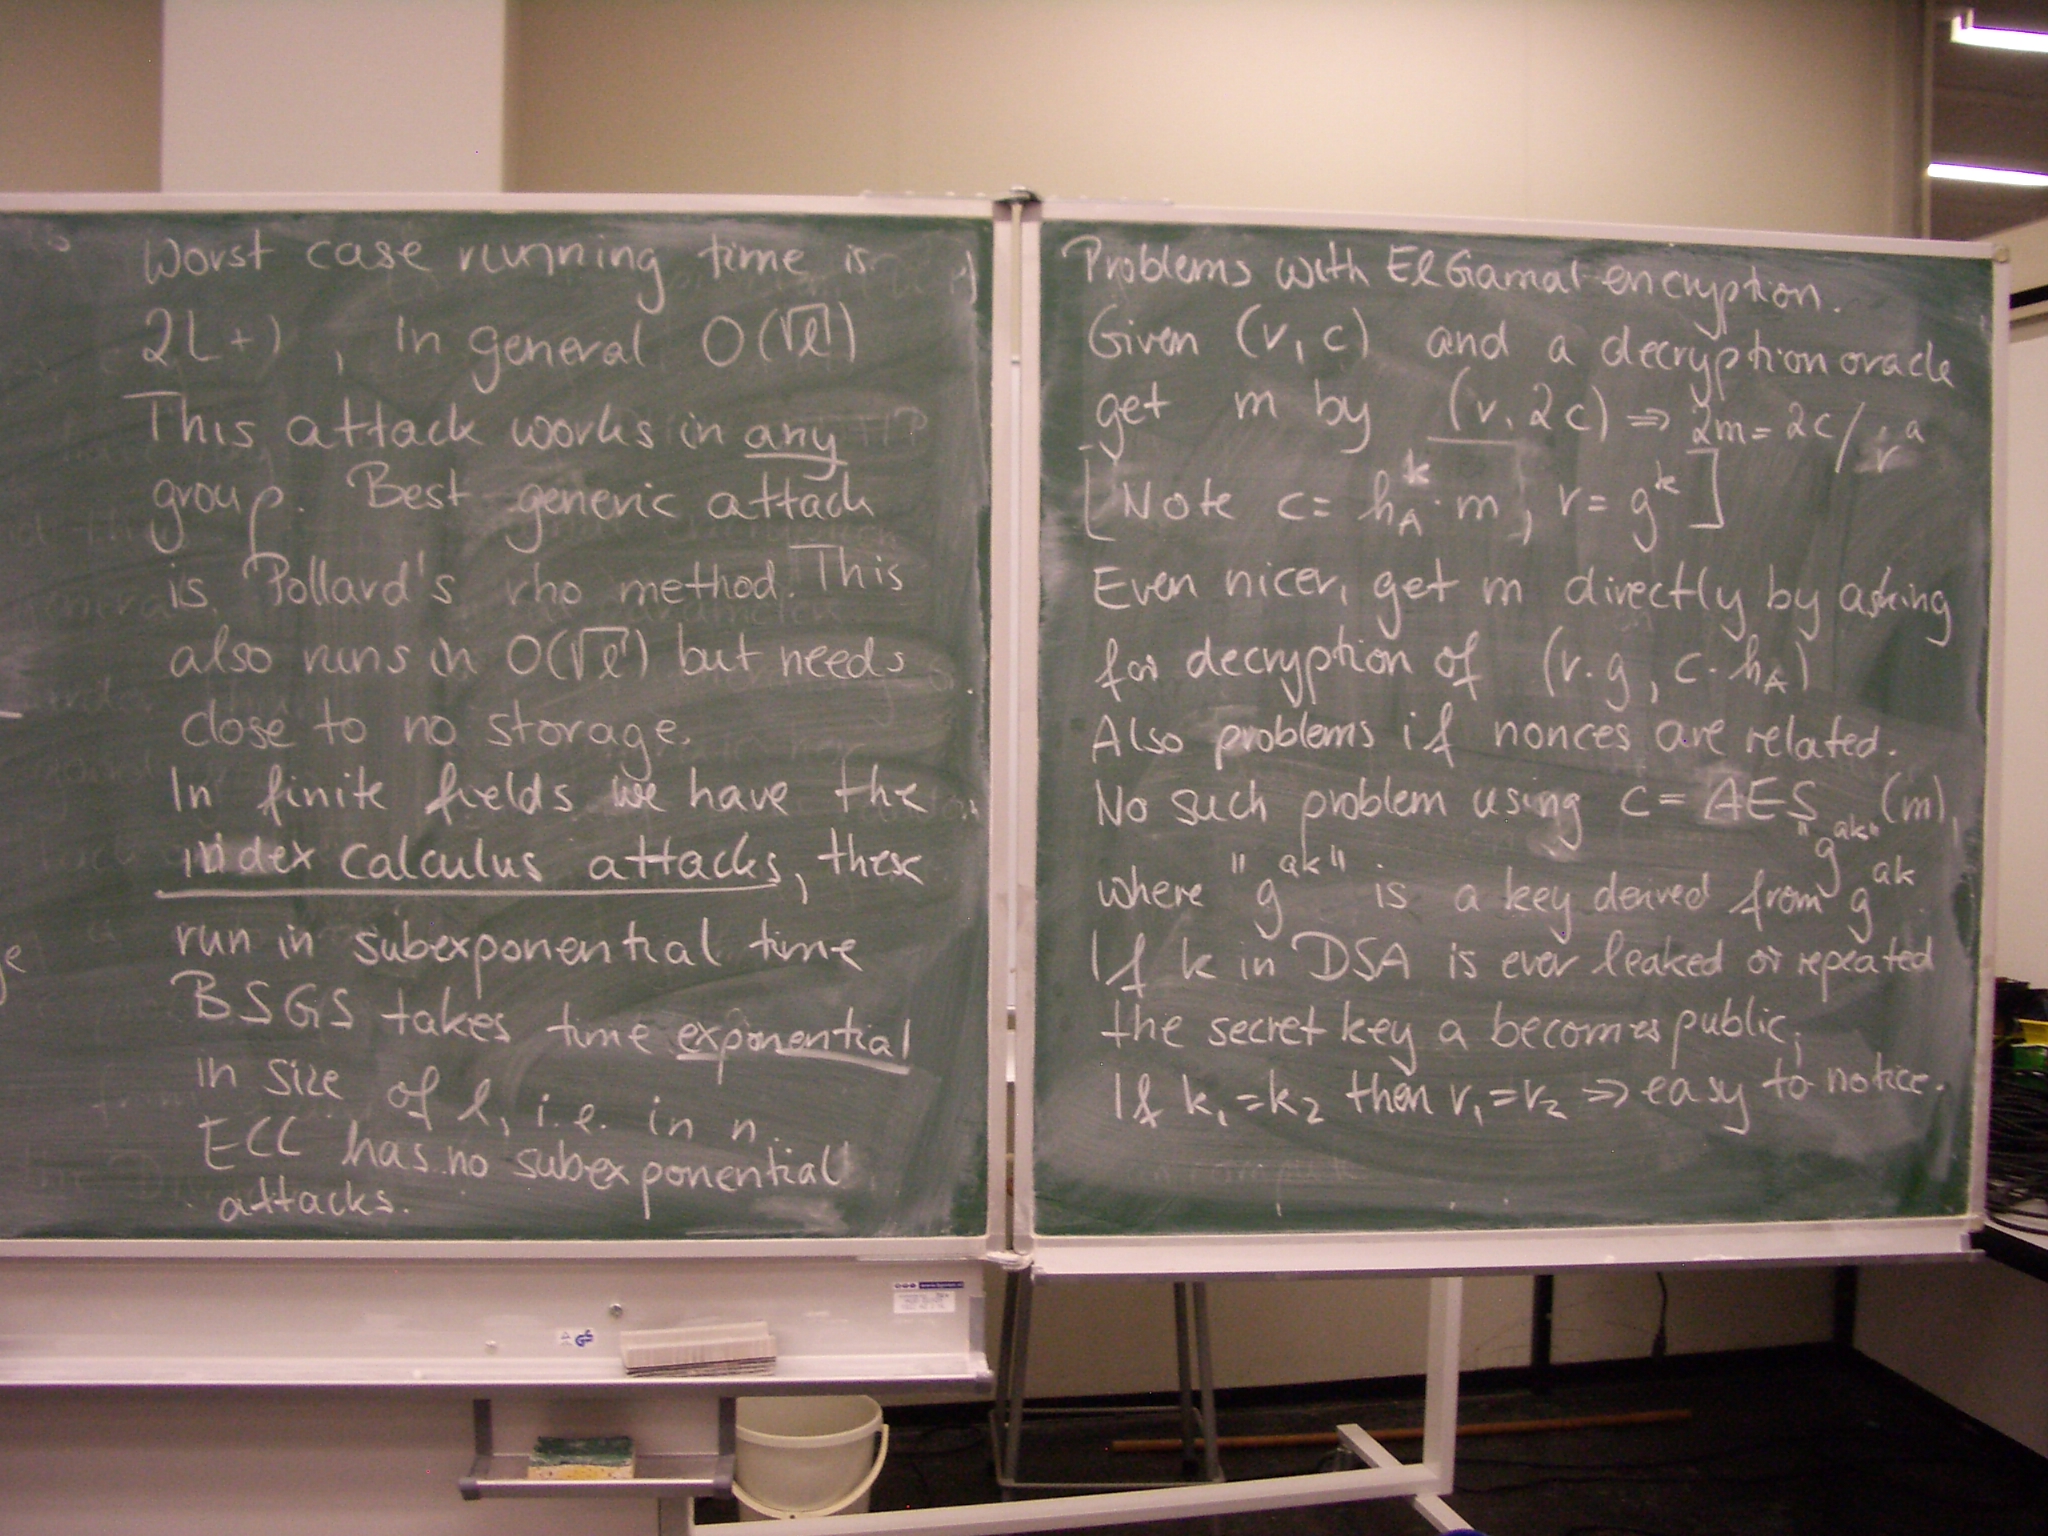 Worst case running time is
2L+1, in general O(√l)
This attack works in any
group. Best generic attack
is Pollard's rho method. This
also runs in O(√l) but needs
close to no storage.
In finite fields we have the
index calculus attacks, these
run in subexponential time
BSGS takes time exponential
in size of l, i.e. in n.
ECC has no subexponential
attacks.
Problems with ElGamal encryption.
Given (r, c) and a decryption oracle
get m by (r, 2c) ⇒ 2m = 2c / r^a
[Note c = h_A^k · m, r = g^k]
Even nicer, get m directly by asking
for decryption of (r·g, c·h_A)
Also problems if nonces are related.
No such problem using c = AES_"g^ak" (m),
where "g^ak" is a key derived from g^ak
If k in DSA is ever leaked or repeated
the secret key a becomes public;
If k_1 = k_2 then r_1 = r_2 ⇒ easy to notice.